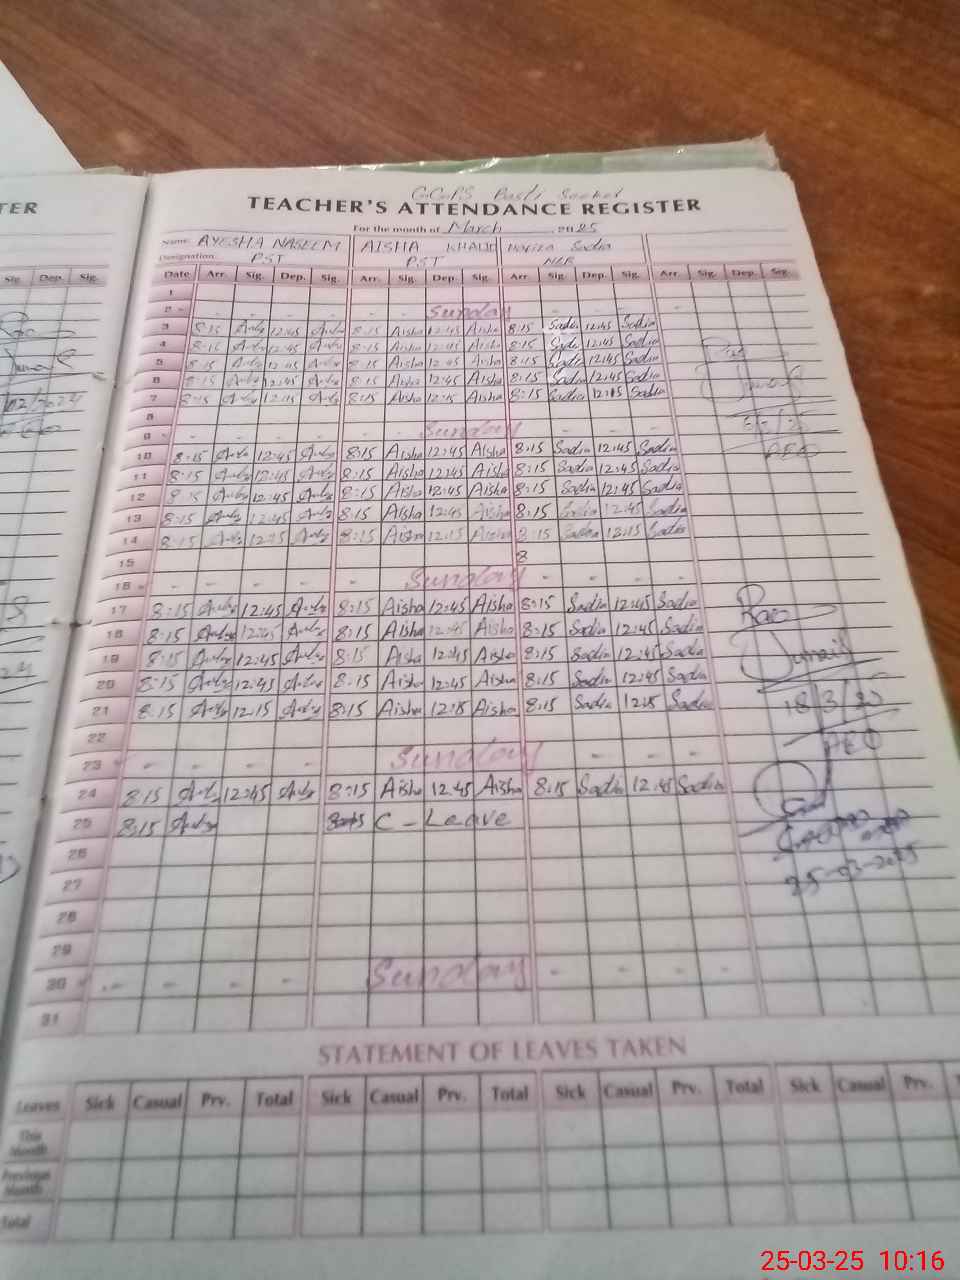 TER
Sig. Dep. Sig.
TEACHER'S ATTENDANCE REGISTER
For the month of March 2025
Name: AYESHA NASEEM AISHA KHALID Sadia
Designation: PST PST
Date Arr. Sig. Dep. Sig. Arr. Sig. Dep. Sig. Arr. Sig. Dep. Sig. Arr. Sig. Dep. Sig.
1
2 - - - - - Sunday - - - -
3 8:15 12:45 8:15 Aisha 12:45 Aisha 8:15 Sadia 12:45 Sadia
4 8:15 12:45 8:15 Aisha 12:45 Aisha 8:15 12:45 Sadia
5 8:15 12:45 8:15 Aisha 12:45 Aisha 8:15 Sadia 12:45 Sadia
6 8:15 12:45 8:15 Aisha 12:45 Aisha 8:15 Sadia 12:45 Sadia
7 8:15 12:15 8:15 Aisha 12:15 Aisha 8:15 Sadia 12:15 Sadia
8
9 - - - - - Sunday - - - -
10 8:15 12:45 8:15 Aisha 12:45 Aisha 8:15 Sadia 12:45 Sadia
11 8:15 12:45 8:15 Aisha 12:45 Aisha 8:15 Sadia 12:45 Sadia
12 8:15 12:45 8:15 Aisha 12:45 Aisha 8:15 Sadia 12:45 Sadia
13 8:15 12:45 8:15 Aisha 12:45 Aisha 8:15 Sadia 12:45 Sadia
14 8:15 12:15 8:15 Aisha 12:15 Aisha 8:15 Sadia 12:15 Sadia
15 8
16 - - - - - Sunday - - - -
17 8:15 12:45 8:15 Aisha 12:45 Aisha 8:15 Sadia 12:45 Sadia
18 8:15 12:45 8:15 Aisha 12:45 Aisha 8:15 Sadia 12:45 Sadia
19 8:15 12:45 8:15 Aisha 12:45 Aisha 8:15 Sadia 12:45 Sadia
20 8:15 12:45 8:15 Aisha 12:45 Aisha 8:15 Sadia 12:45 Sadia
21 8:15 12:15 8:15 Aisha 12:15 Aisha 8:15 Sadia 12:15 Sadia
22
23 - - - - Sunday - - - -
24 8:15 12:45 8:15 Aisha 12:45 Aisha 8:15 Sadia 12:45 Sadia
25 8:15 C - Leave
26
27
28
29
30 - - - - Sunday - - - -
31
Rao
Junaid
18/3/25
AEO
25-03-2025
STATEMENT OF LEAVES TAKEN
Leaves Sick Casual Prv. Total Sick Casual Prv. Total Sick Casual Prv. Total Sick Casual Prv.
This Month
Previous Month
Total
25-03-25 10:16